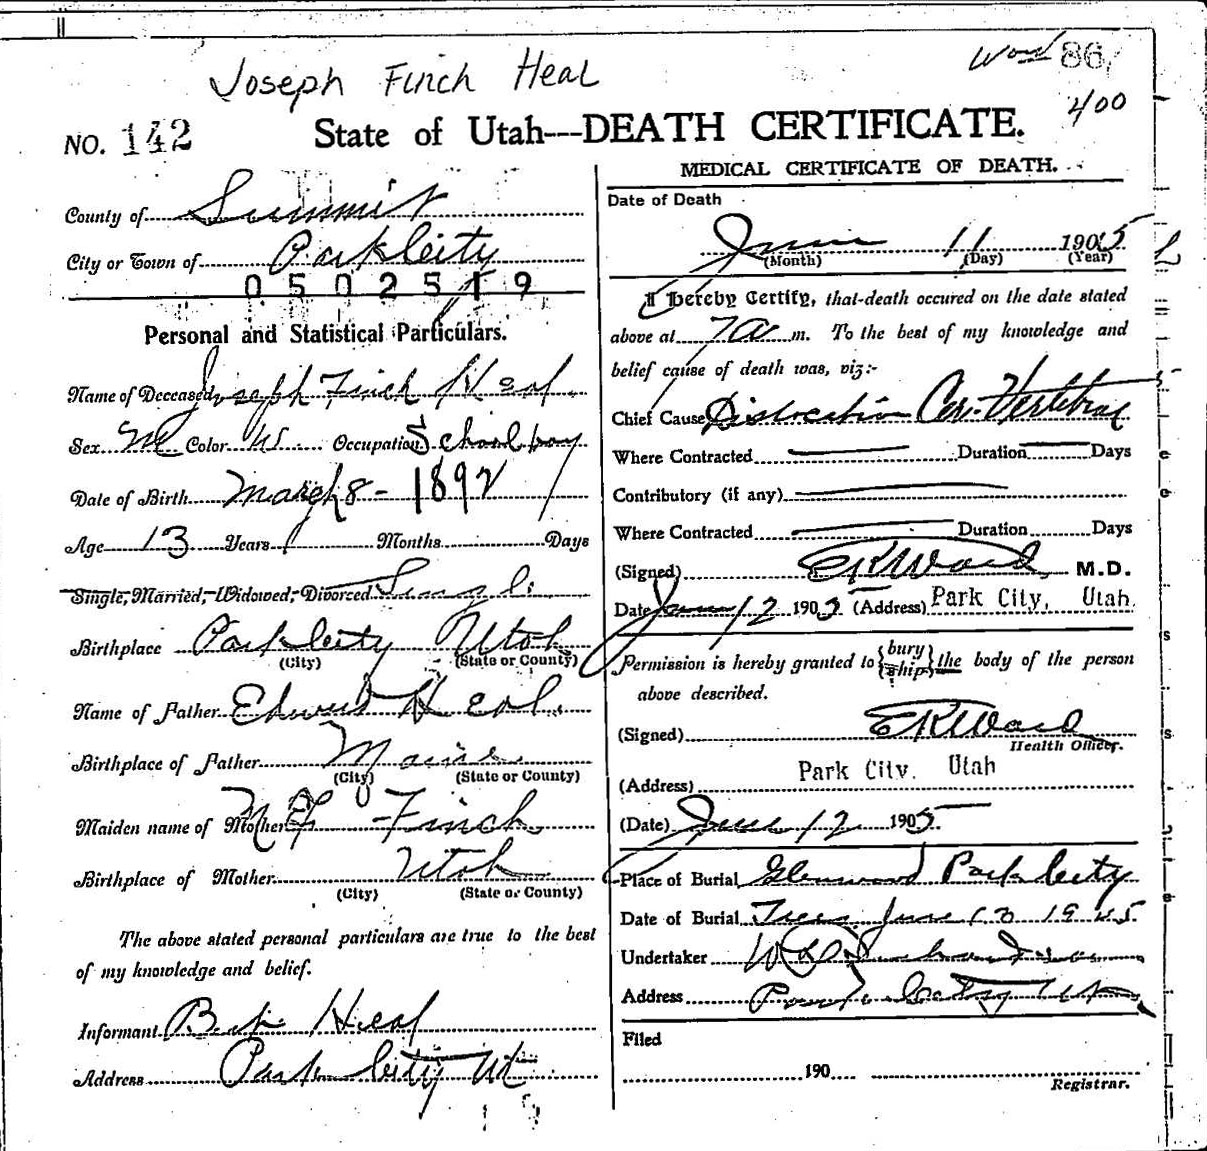 Joseph Finch Heal
86
400
NO. 142 State of Utah---DEATH CERTIFICATE.
County of Summit
City or Town of Park City
0502519
Personal and Statistical Particulars.
Name of Deceased Joseph Finch Heal
Sex M Color W Occupation School boy
Date of Birth March 8 - 1892
Age 13 Years Months Days
Single, Married, Widowed, Divorced Single
Birthplace Park City Utah
(City) (State or County)
Name of Father Edward Heal
Birthplace of Father Maine
(City) (State or County)
Maiden name of Mother Finch
Birthplace of Mother Utah
(City) (State or County)
The above stated personal particulars are true to the best
of my knowledge and belief.
Informant Heal
Address Park City Ut
MEDICAL CERTIFICATE OF DEATH.
Date of Death
June 11 1905
(Month) (Day) (Year)
I hereby Certify, that death occured on the date stated
above at 7 a m. To the best of my knowledge and
belief cause of death was, viz:-
Chief Cause Dislocation Cer. Vertebrae
Where Contracted Duration Days
Contributory (if any)
Where Contracted Duration Days
(Signed) E K Ward M.D.
Date June 12 1905 (Address) Park City, Utah.
Permission is hereby granted to {bury
{ship} the body of the person
above described.
(Signed) E K Ward
Health Officer.
Park City. Utah
(Address)
(Date) June 12 1905
Place of Burial Glenwood Park City
Date of Burial June 13 1905
Undertaker
Address Park City Utah
Filed
190
Registrar.